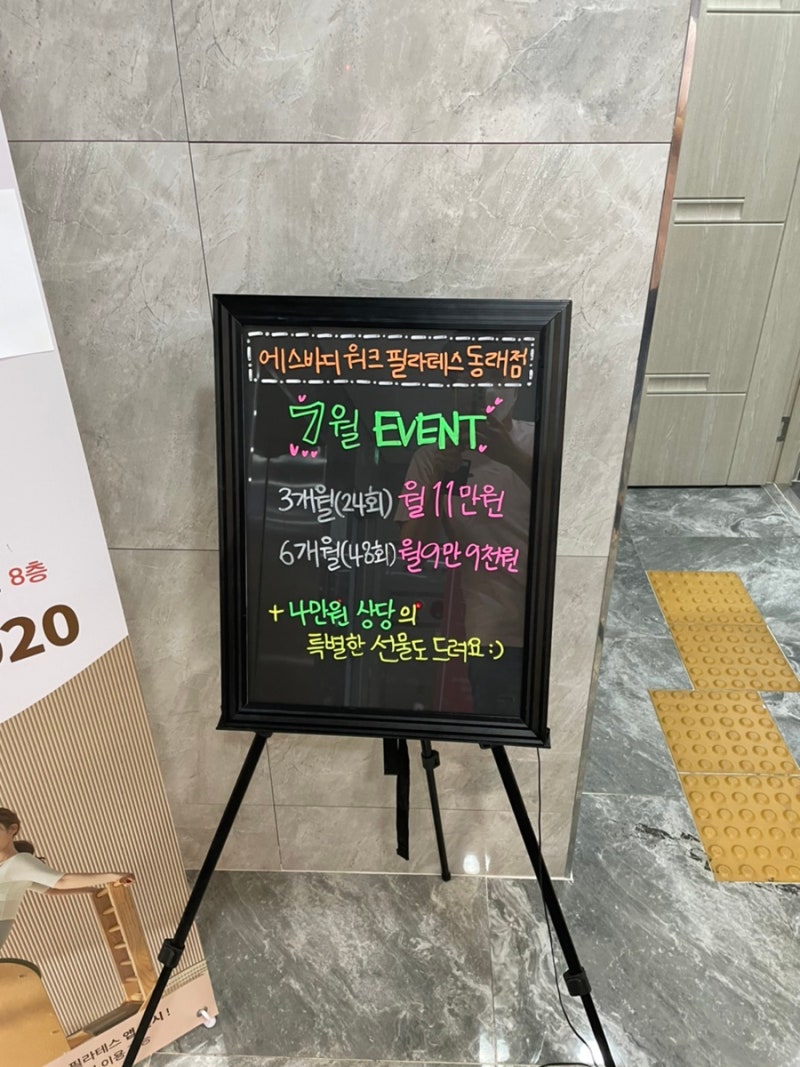 에스바디워크 필라테스 동래점
7월 EVENT
3개월(24회) 월 11만원
6개월(48회) 월 9만 9천원
+ 4만원 상당의
특별한 선물도 드려요:)
8층
020
필라테스 앱
이용